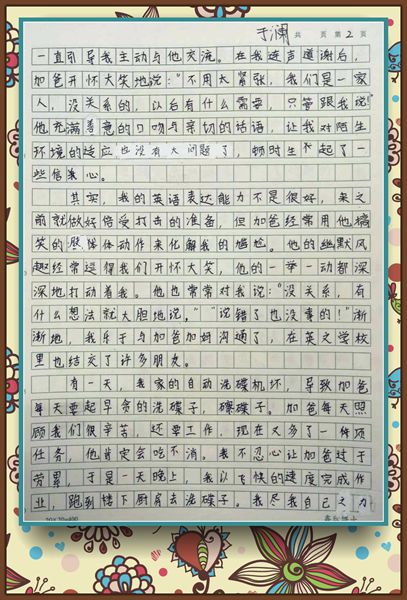 于澜 共 页 第 2 页
一直引导我主动与他交流。在我连声道谢后，
加爸开怀大笑地说："不用太紧张，我们是一家
人，没关系的，以后有什么需要，只管跟我说！"
他充满善意的口吻与亲切的话语，让我对陌生
环境的适应也没有大问题了，顿时生起了一
些信心。
其实，我的英语表达能力不是很好，来之
前就做好倍受打击的准备，但加爸经常用他搞
笑的肢体动作来化解我的尴尬。他的幽默风
趣经常逗得我们开怀大笑，他的一举一动都深
深地打动着我。他也常常对我说："没关系，有
什么想法就大胆地说，""说错了也没事的！"渐
渐地，我乐于与加爸加妈沟通了，在英文学校
里也结交了许多朋友。
有一天，我家的自动洗碟机坏，导致加爸
每天要起早贪的洗碟子，碟子。加爸每天照
顾我们很辛苦，还要工作，现在又多了一件烦
任务，他肯定会吃不消。我不忍心让加爸过于
劳累，于是一天晚上，我以飞快的速度完成作
业，跑到楼下厨房去洗碟子。我尽我自己之力
20×20=400